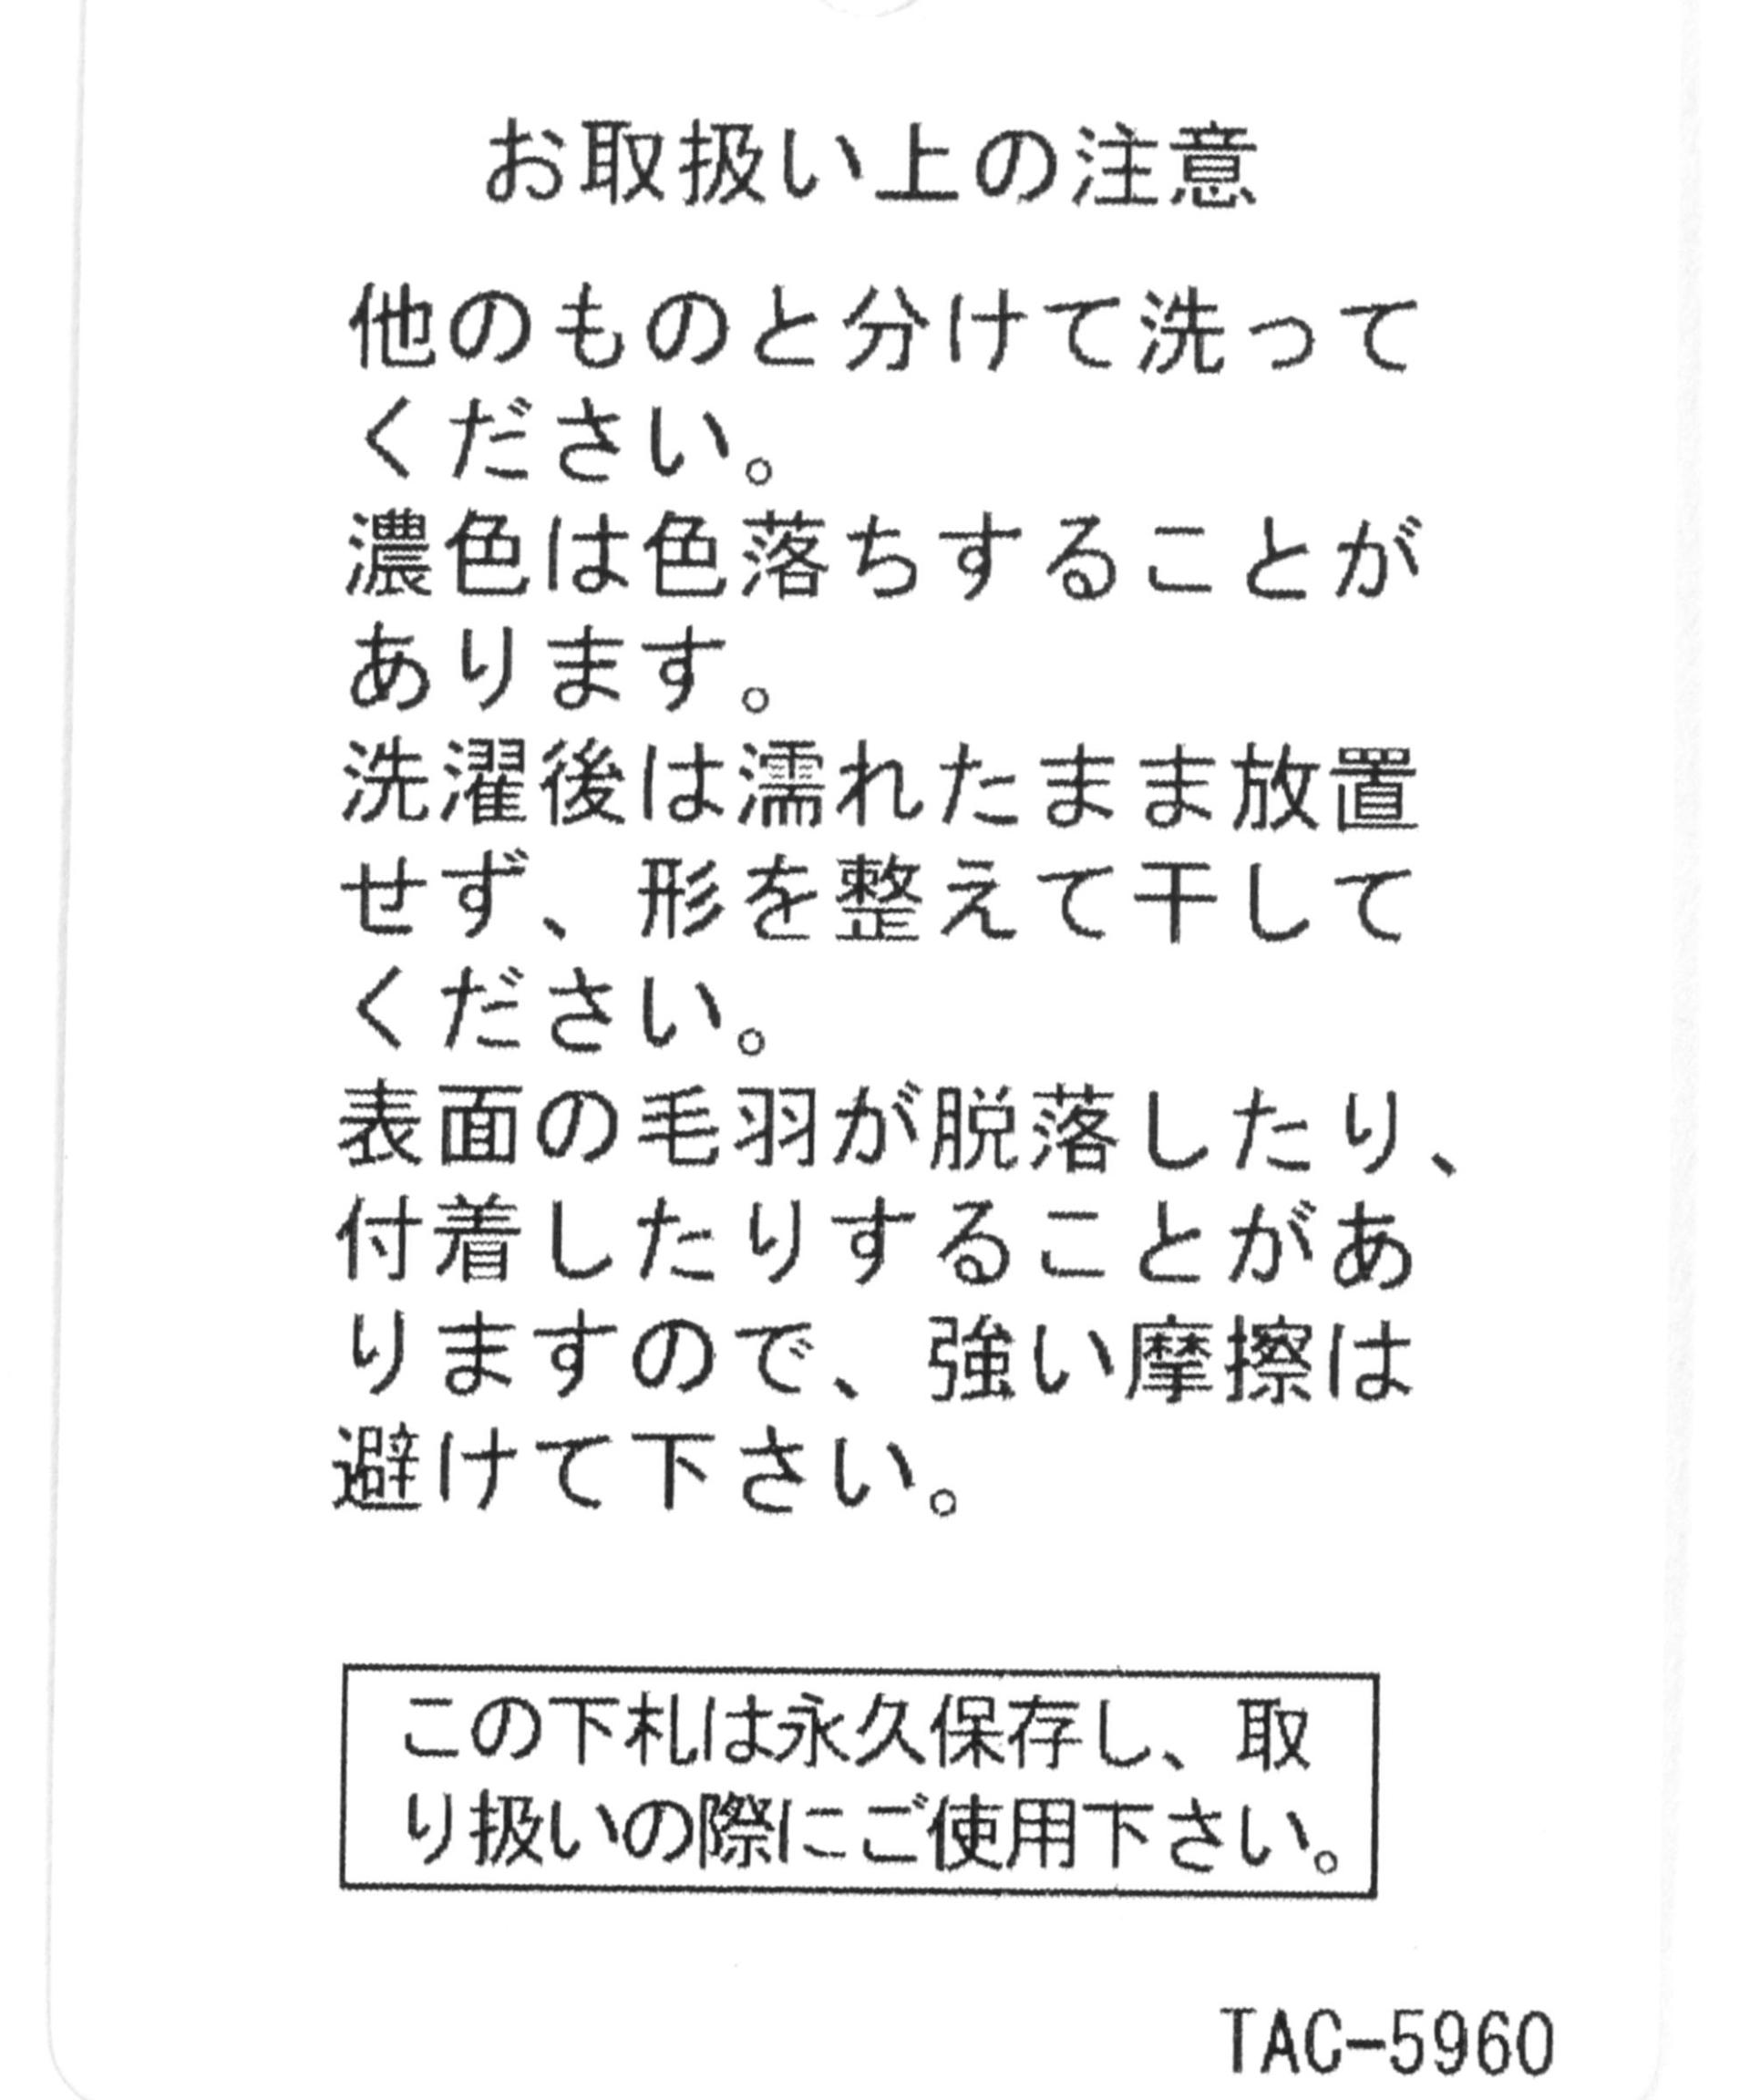 お取扱い上の注意
他のものと分けて洗って
ください。
濃色は色落ちすることが
あります。
洗濯後は濡れたまま放置
せず、形を整えて干して
ください。
表面の毛羽が脱落したり、
付着したりすることがあ
りますので、強い摩擦は
避けて下さい。
この下札は永久保存し、取
り扱いの際にご使用下さい。
TAC-5960